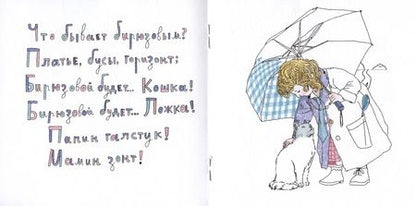 Что бывает бирюзовым?
Платье, бусы, горизонт;
Бирюзовой будет... Кошка!
Бирюзовой будет... Ложка!
Папин галстук!
Мамин зонт!